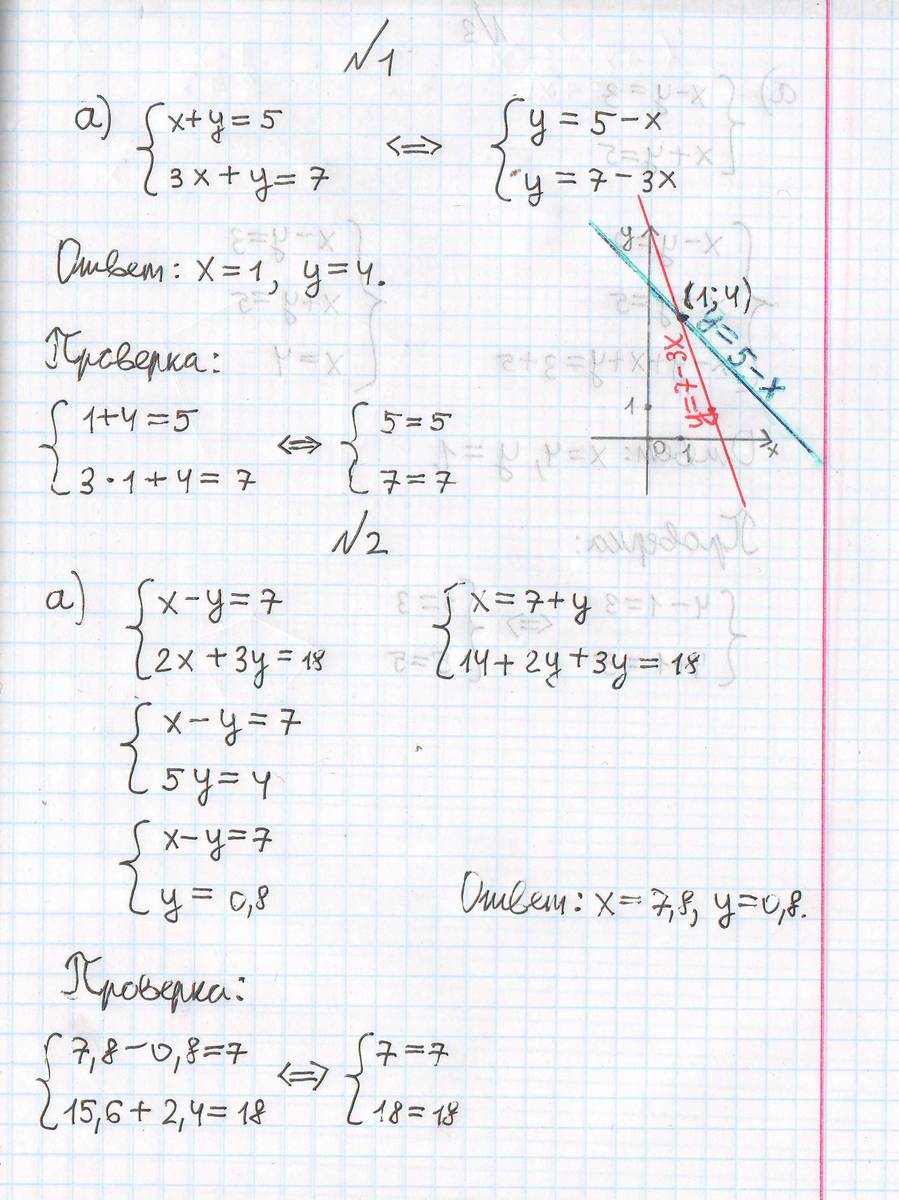 №1
а) { x+y=5 <=> { y = 5-x
3x+y=7 y = 7-3x
Ответ: x=1, y=4.
y
(1;4)
y=5-x
y=7-3x
1
0 1 x
Проверка:
{ 1+4=5 <=> { 5=5
3·1+4=7 7=7
№2
а) { x-y=7 { x=7+y
2x+3y=18 14+2y+3y=18
{ x-y=7
5y=4
{ x-y=7
y=0,8
Ответ: x=7,8, y=0,8.
Проверка:
{ 7,8-0,8=7 <=> { 7=7
15,6+2,4=18 18=18